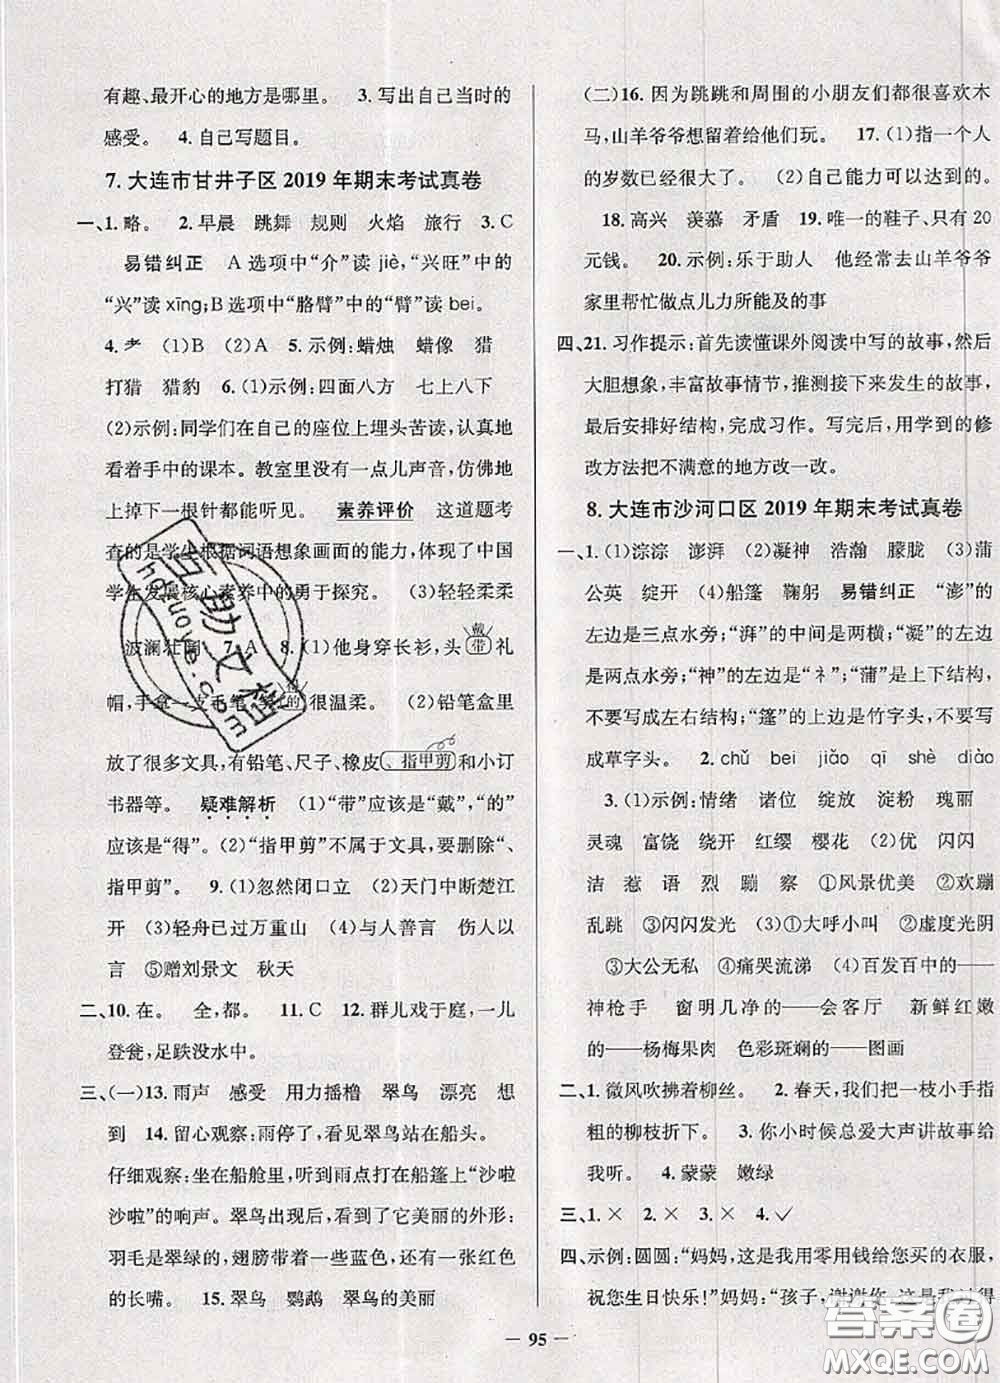 有趣、最开心的地方是哪里。 3. 写出自己当时的
感受。 4. 自己写题目。
7. 大连市甘井子区 2019 年期末考试真卷
一、1. 略。 2. 早晨 跳舞 规则 火焰 旅行 3. C
易错纠正 A 选项中“介”读 jiè,“兴旺”中的
“兴”读 xīng;B 选项中“胳臂”中的“臂”读 bei。
4. 耂 (1)B (2)A 5. 示例:蜡烛 蜡像 猎
打猎 猎豹 6. (1)示例:四面八方 七上八下
(2)示例:同学们在自己的座位上埋头苦读,认真地
看着手中的课本。教室里没有一点儿声音,仿佛地
上掉下一根针都能听见。 素养评价 这道题考
查的是学生根据词语想象画面的能力,体现了中国
学生发展核心素养中的勇于探究。 (3)轻轻柔柔
波澜壮阔 7. A 8. (1)他身穿长衫,头带礼 戴
帽,手拿一支毛笔 的很温柔。 (2)铅笔盒里
放了很多文具,有铅笔、尺子、橡皮、指甲剪和小订
书器等。 疑难解析 (1)“带”应该是“戴”,“的”
应该是“得”。(2)“指甲剪”不属于文具,要删除“、
指甲剪”。 9. (1)忽然闭口立 (2)天门中断楚江
开 (3)轻舟已过万重山 (4)与人善言 伤人以
言 ⑤赠刘景文 秋天
二、10. 在。 全,都。 11. C 12. 群儿戏于庭,一儿
登瓮,足跌没水中。
三、(一)13. 雨声 感受 用力摇橹 翠鸟 漂亮 想
到 14. 留心观察:雨停了,看见翠鸟站在船头。
仔细观察:坐在船舱里,听到雨点打在船篷上“沙啦
沙啦”的响声。翠鸟出现后,看到了它美丽的外形:
羽毛是翠绿的,翅膀带着一些蓝色,还有一张红色
的长嘴。 15. 翠鸟 鹦鹉 翠鸟的美丽
(二)16. 因为跳跳和周围的小朋友们都很喜欢木
马,山羊爷爷想留着给他们玩。 17. (1)指一个人
的岁数已经很大了。 (2)自己可以达到的。
18. 高兴 羡慕 矛盾 19. 唯一的鞋子、只有 20
元钱。 20. 示例:乐于助人 他经常去山羊爷爷
家里帮忙做点儿力所能及的事
四、21. 习作提示:首先读懂课外阅读中写的故事,然后
大胆想象,丰富故事情节,推测接下来发生的故事,
最后安排好结构,完成习作。用上学到的修
改方法把不满意的地方改一改。
8. 大连市沙河口区 2019 年期末考试真卷
一、1. (1)淙淙 澎湃 (2)凝神 浩瀚 朦胧 (3)蒲
公英 绽开 (4)船篷 鞠躬 易错纠正 “澎”的
左边是三点水旁;“湃”的中间是两横;“凝”的左边
是两点水旁;“神”的左边是“礻”;“蒲”是上下结构,
不要写成左右结构;“篷”的上边是竹字头,不要写
成草字头。 2. chǔ bei jiǎo qī shè diào
3. (1)示例:情绪 诸位 绽放 淀粉 瑰丽
灵魂 富饶 绕开 红缨 樱花 (2)优 闪闪
洁 惹 语 烈 蹦 察 ①风景优美 ②欢蹦
乱跳 ③闪闪发光 (3)①大呼小叫 ②虚度光阴
③大公无私 ④痛哭流涕 (4)百发百中的——
神枪手 窗明几净的——会客厅 新鲜红嫩
的——杨梅果肉 色彩斑斓的——图画
二、1. 微风吹拂着柳丝。 2. 春天,我把一枝小手指
粗的柳枝折下。 3. 你小时候总爱大声讲故事给
我听。 4. 蒙蒙 嫩绿
三、1. × 2. × 3. × 4. ✓
四、示例:圆圆:“妈妈,这是我用零用钱给您买的衣服,
祝您生日快乐!”妈妈:“孩子,谢谢你
— 95 —
互助文档
hdzuoye.com
答案圈
MXQE.COM